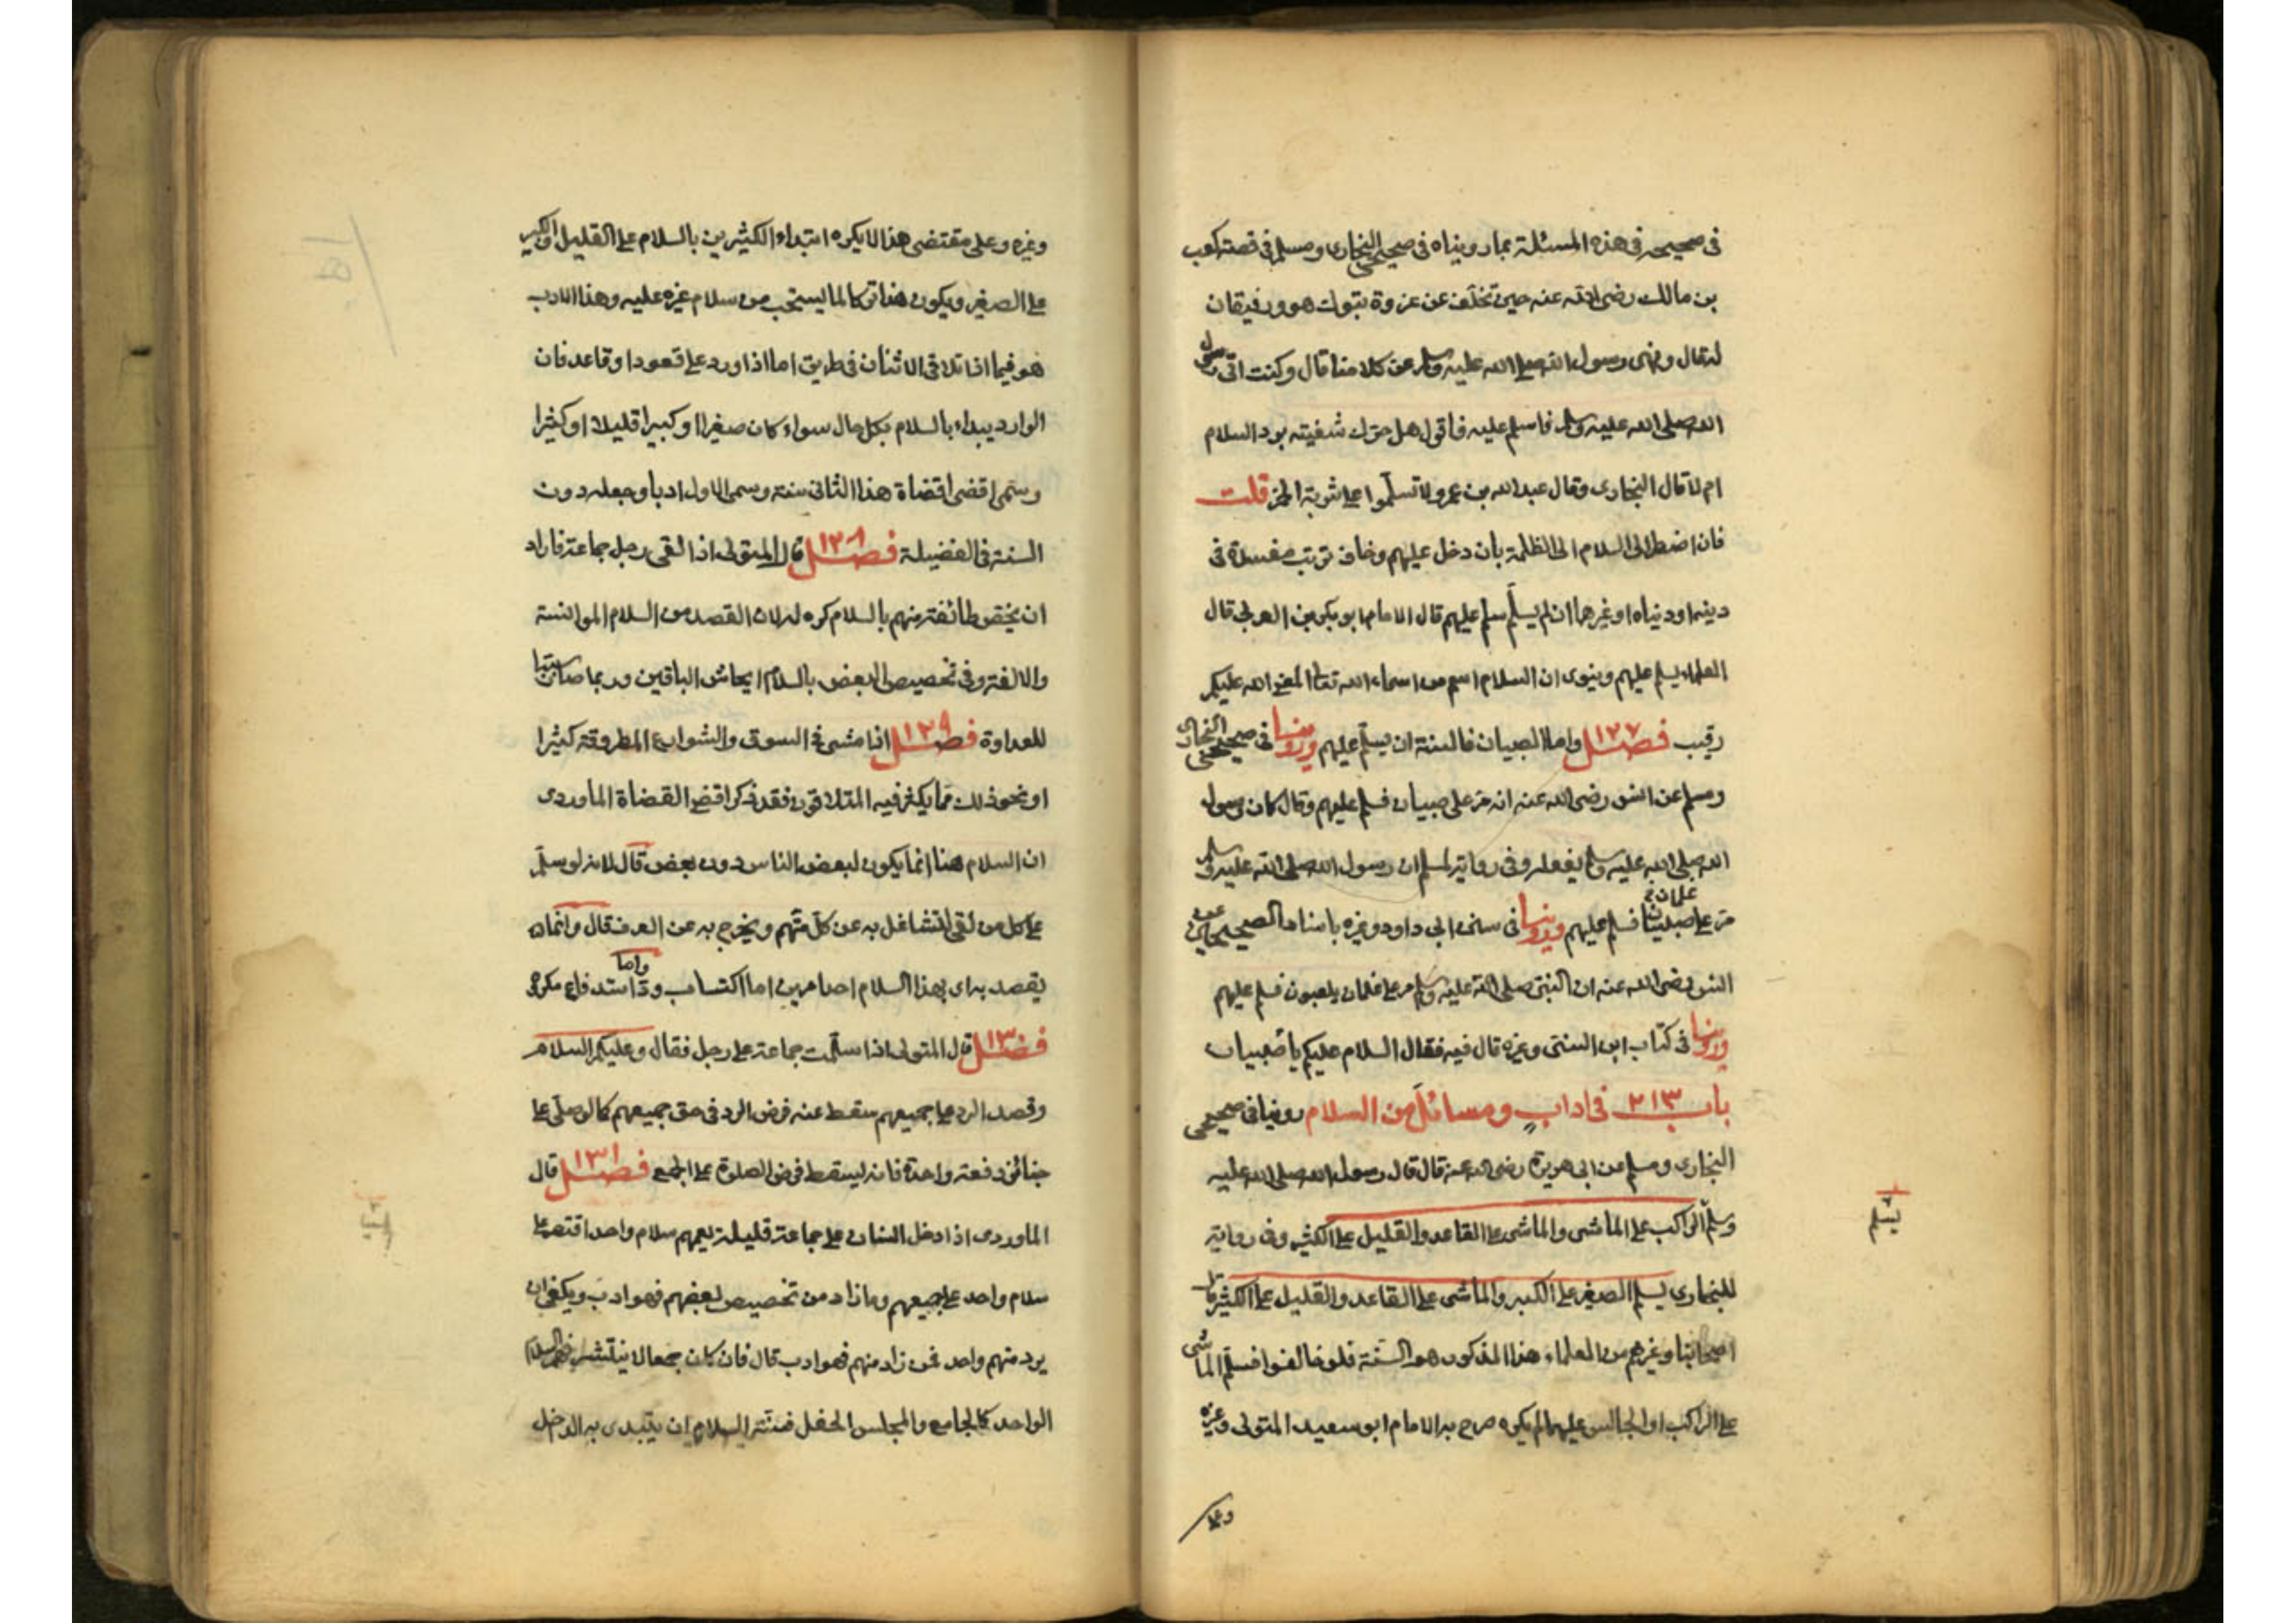 في صحيحه في هذه المسئلة بما رويناه في صحيحي البخاري ومسلم في قصة كعب
بن مالك رضي الله عنه حين تخلف عن غزوة تبوك هو ورفيقان
له قال ونهى رسول الله صلى الله عليه وسلم عن كلامنا قال وكنت اتى رسول
الله صلى الله عليه وسلم فاسلم عليه فاقول هل حرك شفيته برد السلام
ام لا قال البخاري وقال عبد الله بن عمرو لا تسلموا على شربة الخمر قلت
فان اضطر الى السلام الى الظلمة بان دخل عليهم وخاف ترتب مفسدة في
دينه او دنياه او غيرهما ان لم يسلم سلم عليهم قال الامام ابو بكر بن العربي قال
العلماء يسلم عليهم وينوى ان السلام اسم من اسماء الله تعالى المعنى الله عليكم
رقيب فصل ١٢٧ واما الصبيان فالسنة ان يسلم عليهم وروينا في صحيحي البخاري
ومسلم عن انس رضي الله عنه انه مر على صبيان فسلم عليهم وقال كان رسول
الله صلى الله عليه وسلم يفعله وفي رواية لمسلم ان رسول الله صلى الله عليه وسلم
مر على غلمان فسلم عليهم وروينا في سنن ابي داود وغيره باسناد الصحيحين عن
انس رضي الله عنه ان النبي صلى الله عليه وسلم مر على غلمان يلعبون فسلم عليهم
وروينا في كتاب ابن السنى وغيره قال فيه فقال السلام عليكم يا صبيان
باب ٢١٣ في اداب ومسائل من السلام روينا في صحيحي
البخاري ومسلم عن ابي هريرة رضي الله عنه قال قال رسول الله صلى الله عليه
وسلم الراكب على الماشى والماشى على القاعد والقليل على الكثير وفي رواية
يسلم
للبخاري يسلم الصغير على الكبير والماشى على القاعد والقليل على الكثير قال
اصحابنا وغيرهم من العلماء هذا المذكور هو السنة فلو خالفوا فسلم الماشى
على الراكب او الجالس عليهما لم يكره صرح به الامام ابو سعيد المتولى وغيره
وعلى
وغيره وعلى مقتضى هذا لا يكره ابتداء الكثيرين بالسلام على القليل والكبير
على الصغير ويكون هذا تركا لما يستحب من سلام غيره عليه وهذا الادب
هو فيما اذا تلاقى الاثنان في طريق اما اذا ورد على قعود او قاعد فان
الوارد يبداء بالسلام بكل حال سواء كان صغيرا او كبيرا قليلا او كثيرا
وسمى اقضى اقضاة هذا الثانى سنة وسمى الاول ادبا وجعله دون
السنة في الفضيلة فصل ١٢٨ قال المتولى اذا لقى رجل جماعة فاراد
ان يخص طائفة منهم بالسلام كره له لان القصد من السلام الموانسة
والالفة وفي تخصيص البعض بالسلام ايحاش الباقين وربما صار سببا
للعداوة فصل ١٢٩ اذا مشى في السوق والشوارع المطروقة كثيرا
او نحو ذلك مما يكثر فيه المتلاقون فقد ذكر اقضى القضاة الماوردى
ان السلام هنا انما يكون لبعض الناس دون بعض قال لانه لو سلم
على كل من لقى لتشاغل به عن كل مهم ويخرج به عن العرف قال وانما
يقصد به اى بهذا السلام احد امرين اما اكتساب ود واما استدفاع مكروه
فصل ١٣٠ قال المتولى اذا سلمت جماعة على رجل فقال وعليكم السلام
وقصد الرد على جميعهم سقط عنه فرض الرد في حق جميعهم كما لو صلى على
جنائز دفعة واحدة فانه يسقط فرض الصلوة على الجميع فصل ١٣١ قال
الماوردى اذا دخل انسان على جماعة قليلة يعمهم سلام واحد اقتصر على
سلام واحد على جميعهم وما زاد من تخصيص بعضهم فهو ادب ويكفى ان
يرد منهم واحد فمن زاد منهم فهو ادب قال فان كان جمعا لا ينتشر فيهم السلام
الواحد كالجامع والمجلس الحفل فسنة السلام ان يبتدى به الداخل